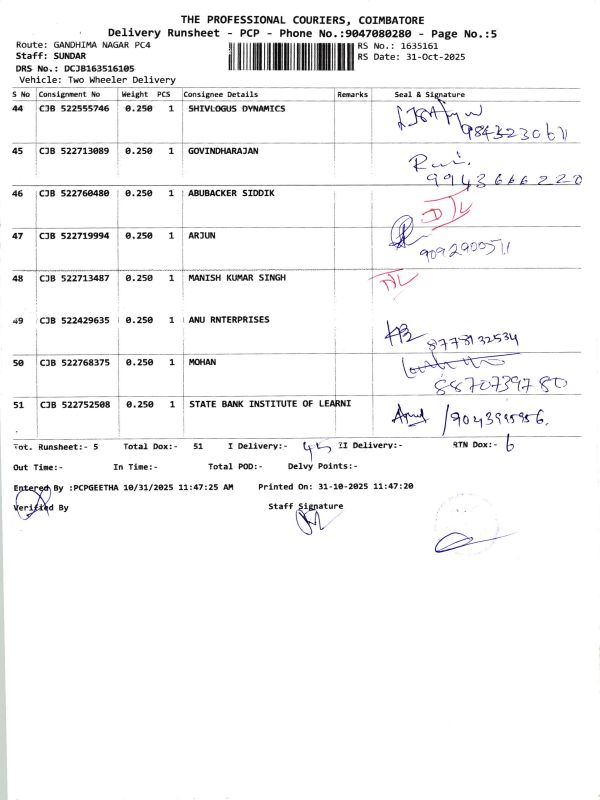 THE PROFESSIONAL COURIERS, COIMBATORE
Delivery Runsheet - PCP - Phone No.:9047080280 - Page No.:5
Route: GANDHIMA NAGAR PC4
RS No.: 1635161
Staff: SUNDAR
RS Date: 31-Oct-2025
DRS No.: DCJB163516105
Vehicle: Two Wheeler Delivery
S No Consignment No Weight PCS Consignee Details Remarks Seal & Signature
44 CJB 522555746 0.250 1 SHIVLOGUS DYNAMICS
9843230671
45 CJB 522713089 0.250 1 GOVINDHARAJAN
Ravi.
9943666220
46 CJB 522760480 0.250 1 ABUBACKER SIDDIK
DL
47 CJB 522719994 0.250 1 ARJUN
9092900511
48 CJB 522713487 0.250 1 MANISH KUMAR SINGH
DL
49 CJB 522429635 0.250 1 ANU RNTERPRISES
8778132534
50 CJB 522768375 0.250 1 MOHAN
8870739780
51 CJB 522752508 0.250 1 STATE BANK INSTITUTE OF LEARNI
Tot. Runsheet:- 5 Total Dox:- 51 I Delivery:- 45 II Delivery:- RTN Dox:- 6
Out Time:- In Time:- Total POD:- Delvy Points:-
Entered By :PCPGEETHA 10/31/2025 11:47:25 AM Printed On: 31-10-2025 11:47:20
Verified By Staff Signature